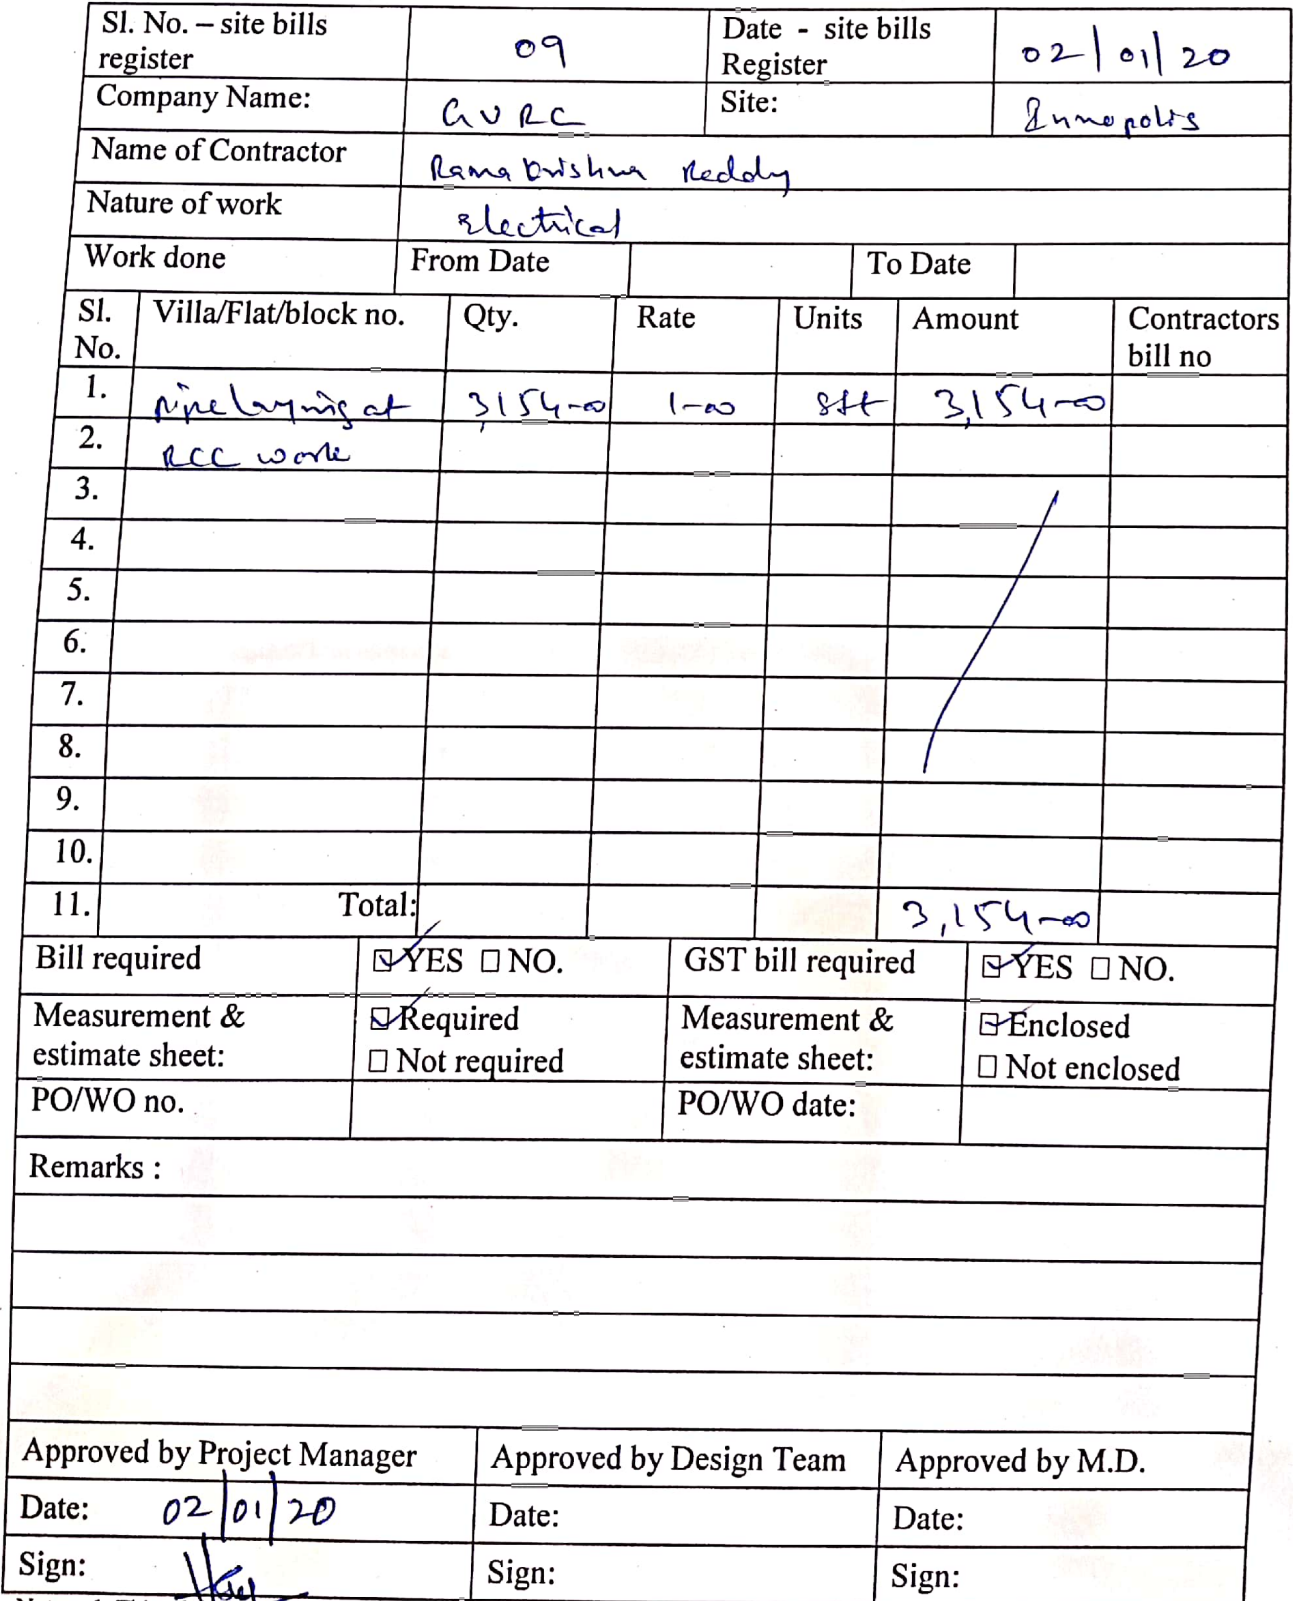 Sl. No. – site bills register 09 Date - site bills Register 02/01/20
Company Name: GVRC Site: Innopolis
Name of Contractor Ramakrishna Reddy
Nature of work Electrical
Work done From Date To Date
Sl. No. Villa/Flat/block no. Qty. Rate Units Amount Contractors bill no
1. pipe laying at 3,154-00 1-00 sft 3,154-00
2. RCC work
3.
4.
5.
6.
7.
8.
9.
10.
11. Total: 3,154-00
Bill required ☑ YES ☐ NO. GST bill required ☑ YES ☐ NO.
Measurement & estimate sheet: ☑ Required ☐ Not required Measurement & estimate sheet: ☑ Enclosed ☐ Not enclosed
PO/WO no. PO/WO date:
Remarks :
Approved by Project Manager Approved by Design Team Approved by M.D.
Date: 02/01/20 Date: Date:
Sign: Sign: Sign: